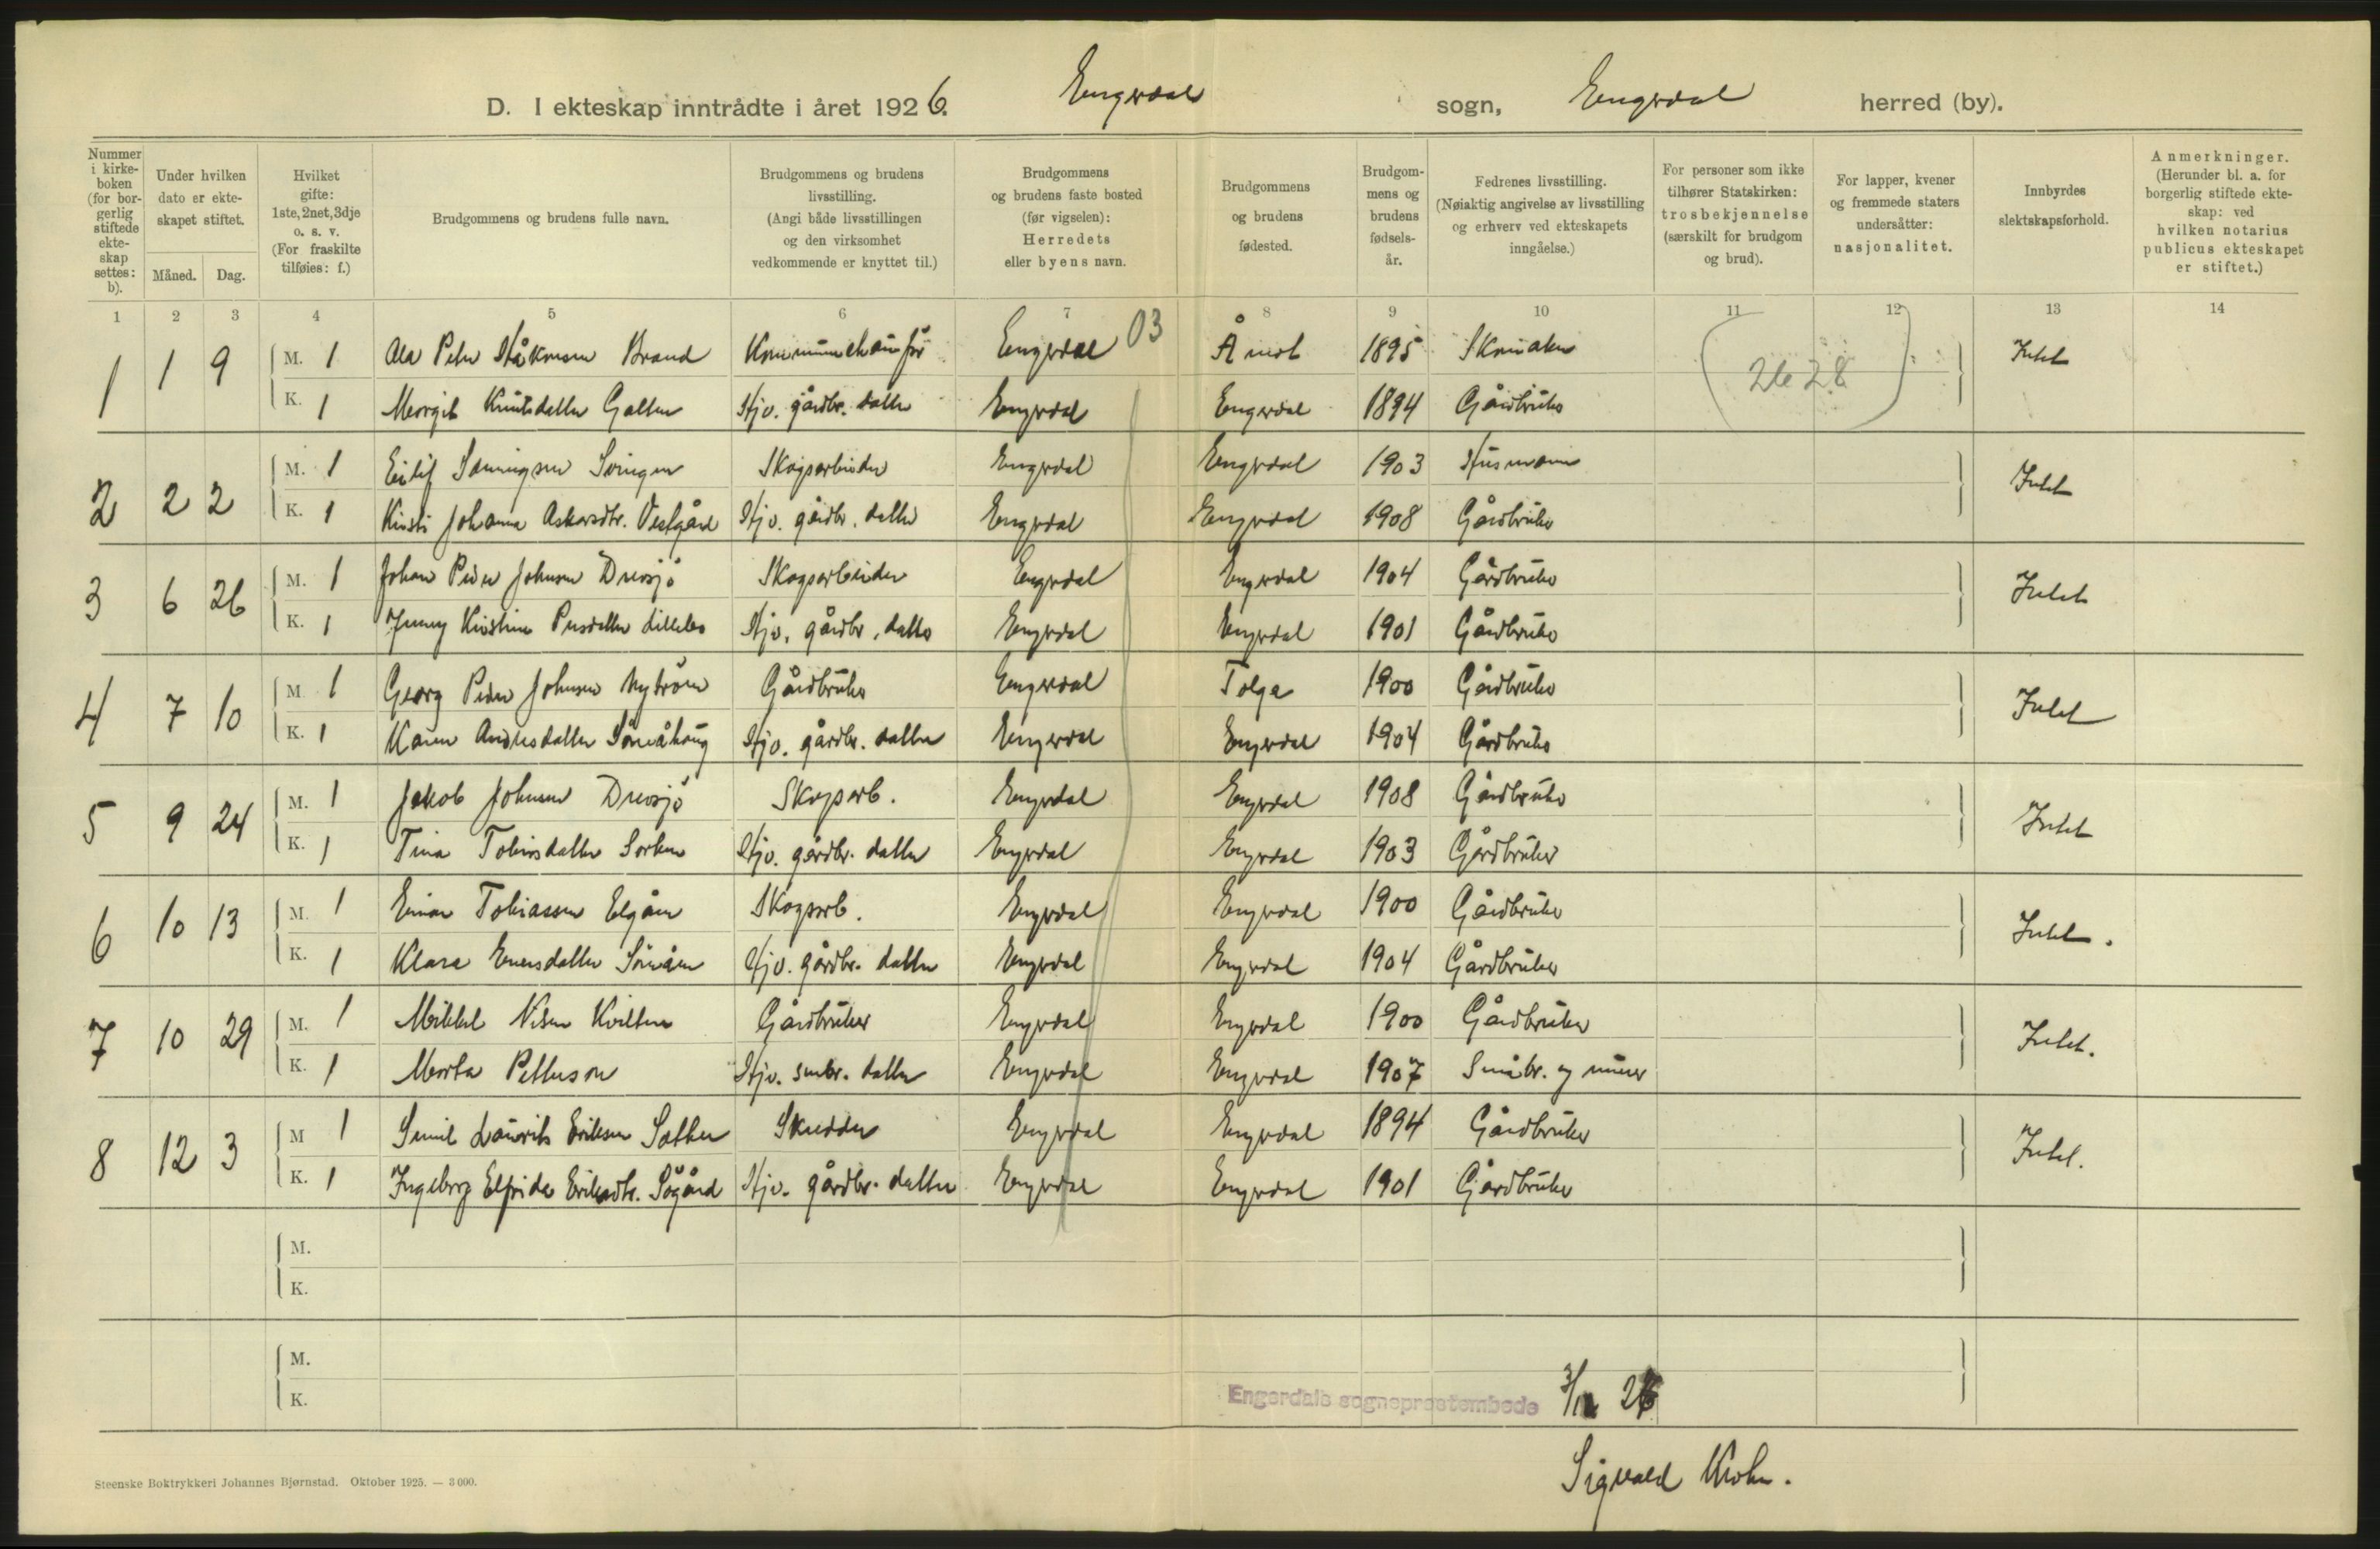 D. I ekteskap inntrådte i året 1926. Engerdal sogn, Engerdal herred (by).
Nummer i kirke-boken (for bor-gerlig stiftede ekte-skap settes: b).
Under hvilken dato er ekte-skapet stiftet.
Måned. Dag.
Hvilket gifte: 1ste, 2net, 3dje o. s. v. (For fraskilte tilføies: f.)
Brudgommens og brudens fulle navn.
Brudgommens og brudens livsstilling. (Angi både livsstillingen og den virksomhet vedkommende er knyttet til.)
Brudgommens og brudens faste bosted (før vigselen): Herredets eller byens navn.
Brudgommens og brudens fødested.
Brudgom-mens og brudens fødsels-år.
Fedrenes livsstilling. (Nøiaktig angivelse av livsstilling og erhverv ved ekteskapets inngåelse.)
For personer som ikke tilhører Statskirken: trosbekjennelse (særskilt for brudgom og brud).
For lapper, kvener og fremmede staters undersåtter: nasjonalitet.
Innbyrdes slektskapsforhold.
Anmerkninger. (Herunder bl. a. for borgerlig stiftede ekte-skap: ved hvilken notarius publicus ekteskapet er stiftet.)
1 2 3 4 5 6 7 8 9 10 11 12 13 14
03
1 1 9 M. 1 Ola Peder Håkonsen Brand Engerdal Åmot 1895 Skomaker Intet
K. 1 Margit Knutsdatter Galten Hjv. gårdbr. datter Engerdal Engerdal 1894 Gårdbruker
2 2 2 M. 1 Eilif Sømingsen Skogsarbeider Engerdal Engerdal 1903 Husmann Intet
K. 1 Kirsti Johanna Askarsdtr. Vestgård Hjv. gårdbr. datter Engerdal Engerdal 1908 Gårdbruker
3 6 26 M. 1 Johan Peder Johnsen Drevsjø Skogsarbeider Engerdal Engerdal 1904 Gårdbruker Intet
K. 1 Jenny Kristine Persdatter Lillebo Hjv. gårdbr. datter Engerdal Engerdal 1901 Gårdbruker
4 7 10 M. 1 Georg Peder Johnsen Nystrøm Gårdbruker Engerdal Tolga 1900 Gårdbruker Intet
K. 1 Karen Andersdatter Sømåhaug Hjv. gårdbr. datter Engerdal Engerdal 1904 Gårdbruker
5 9 24 M. 1 Jakob Johnsen Drevsjø Skogsarb. Engerdal Engerdal 1908 Gårdbruker Intet
K. 1 Tina Tobiasdatter Sorken Hjv. gårdbr. datter Engerdal Engerdal 1903 Gårdbruker
6 10 13 M. 1 Einar Tobiassen Elgåen Skogsarb. Engerdal Engerdal 1900 Gårdbruker Intet.
K. 1 Klara Hjv. gårdbr. datter Engerdal Engerdal 1904 Gårdbruker
7 10 29 M. 1 Mikkel Nilsen Kvilten Gårdbruker Engerdal Engerdal 1900 Gårdbruker Intet.
K. 1 Marta Petterson Hjv. småbr. datter Engerdal Engerdal 1907 Småbr. og murer
8 12 3 M 1 Laurits Eriksen Sæther Skredder Engerdal Engerdal 1894 Gårdbruker Intet.
K. 1 Ingeborg Elfrida Eriksdtr. Søgård Hjv. gårdbr. datter Engerdal Engerdal 1901 Gårdbruker
M.
K.
M.
K.
Engerdals sogneprestembede 3/12 26
Sigvald Krohn.
Steenske Boktrykkeri Johannes Bjørnstad. Oktober 1925. — 3000.